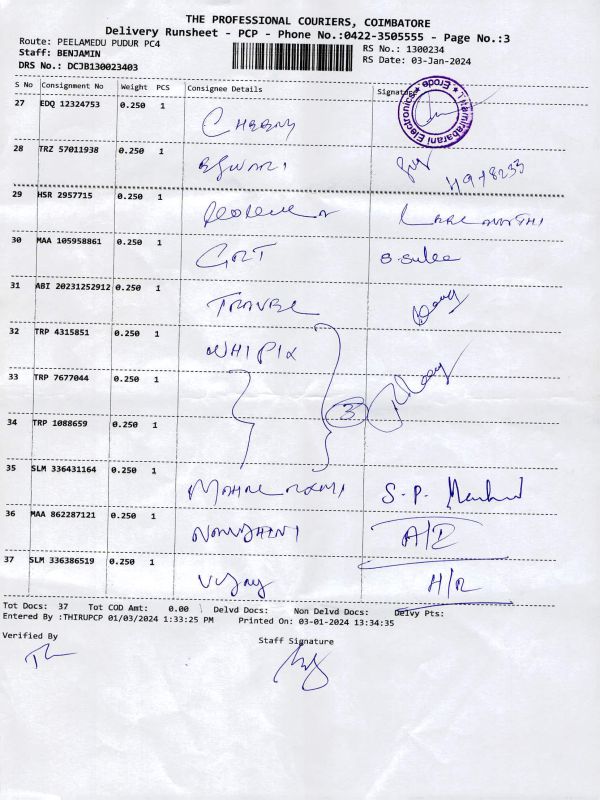 THE PROFESSIONAL COURIERS, COIMBATORE
Delivery Runsheet - PCP - Phone No.:0422-3505555 - Page No.:3
Route: PEELAMEDU PUDUR PC4
RS No.: 1300234
Staff: BENJAMIN
RS Date: 03-Jan-2024
DRS No.: DCJB130023403
S No Consignment No Weight PCS Consignee Details Signature
27 EDQ 12324753 0.250 1
Thamirabarani Electronics * Erode *
28 TRZ 57011938 0.250 1 ESWARI
29 HSR 2957715 0.250 1
30 MAA 105958861 0.250 1 GRT
31 ABI 20231252912 0.250 1
32 TRP 4315851 0.250 1 WHIPIX
33 TRP 7677044 0.250 1
3
34 TRP 1088659 0.250 1
35 SLM 336431164 0.250 1 S.P.
36 MAA 862287121 0.250 1 A/D
37 SLM 336386519 0.250 1 Vijay H/R
Tot Docs: 37 Tot COD Amt: 0.00 Delvd Docs: Non Delvd Docs: Delvy Pts:
Entered By :THIRUPCP 01/03/2024 1:33:25 PM Printed On: 03-01-2024 13:34:35
Verified By Staff Signature